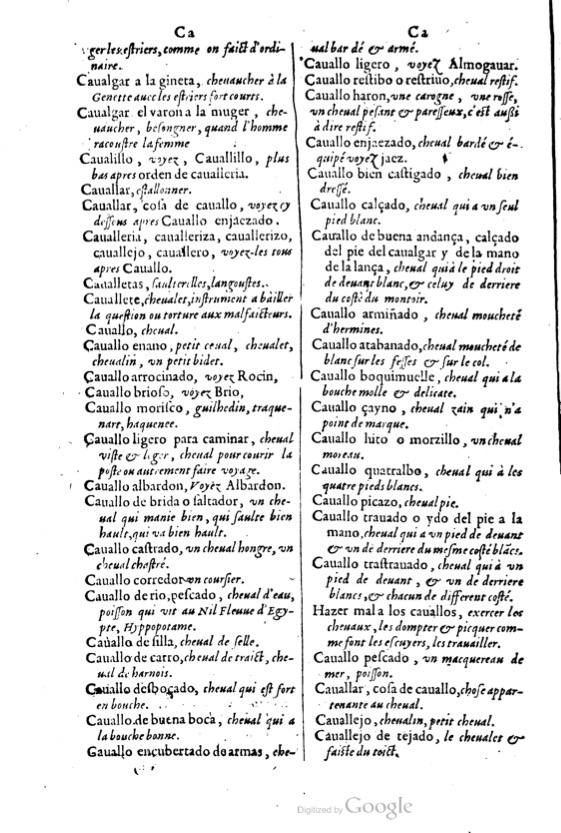 Ca
ger les estriers, comme on faict d'ordi-
naire.
Caualgar a la gineta, cheuaucher à la
Genette auec les estriers fort courts.
Caualgar el varon a la muger, che-
uaucher, besongner, quand l'homme
racoustre la femme
Caualillo, voyez, Cauallillo, plus
bas apres orden de caualleria.
Cauallar, estallonner.
Cauallar, cosa de cauallo, voyez cy
dessous apres Cauallo enjaezado.
Caualleria, caualleriza, cauallerizo,
cauallejo, cauallero, voyez-les tous
apres Cauallo.
Caualletas, saulterelles, langoustes.
Cauallete, cheualet, instrument a bailler
la question ou torture aux malfaicteurs.
Cauallo, cheual.
Cauallo enano, petit ceual, cheualet,
cheualin, vn petit bidet.
Cauallo arrocinado, voyez Rocin,
Cauallo brioso, voyez Brio,
Cauallo morisco, guilhedin, traque-
nart, haquenee.
Cauallo ligero para caminar, cheual
viste & leger, cheual pour courir la
poste ou autrement faire voyage.
Cauallo albardon, Voyez Albardon.
Cauallo de brida o saltador, vn che-
ual qui manie bien, qui saulte bien
hault, qui va bien hault.
Cauallo castrado, vn cheual hongre, vn
cheual chastré.
Cauallo corredor vn coursier.
Cauallo de rio, pescado, cheual d'eau,
poisson qui vit au Nil Fleuue d'Egy-
pte, Hyppopotame.
Cauallo de silla, cheual de selle.
Cauallo de carro, cheual de traict, che-
ual de harnois.
Cauallo desbocado, cheual qui est fort
en bouche.
Cauallo de buena boca, cheual qui a
la bouche bonne.
Cauallo encubertado de armas, che-
Ca
ual bardé & armé.
Cauallo ligero, voyez Almogauar.
Cauallo restibo o restriuo, cheual restif.
Cauallo haron, vne carogne, vne rosse,
vn cheual pesant & paresseux, c'est aussi
à dire restif.
Cauallo enjaezado, cheual bardé & é-
quipé voyez jaez.
Cauallo bien castigado, cheual bien
dressé.
Cauallo calçado, cheual qui a vn seul
pied blanc.
Cauallo de buena andança, calçado
del pie del caualgar y de la mano
de la lança, cheual qui à le pied droit
de deuant blanc, & celuy de derriere
du costé du montoir.
Cauallo armiñado, cheual moucheté
d'hermines.
Cauallo atabanado, cheual moucheté de
blanc sur les fesses & sur le col.
Cauallo boquimuelle, cheual qui a la
bouche molle & delicate.
Cauallo çayno, cheual zain qui n'a
point de marque.
Cauallo hito o morzillo, vn cheual
moreau.
Cauallo quatralbo, cheual qui à les
quatre pieds blancs.
Cauallo picazo, cheual pie.
Cauallo trauado o ydo del pie a la
mano, cheual qui a vn pied de deuant
& vn de derriere du mesme costé blācs.
Cauallo trastrauado, cheual qui à vn
pied de deuant, & vn de derriere
blancs, & chacun de different costé.
Hazer mal a los cauallos, exercer les
cheuaux, les dompter & picquer com-
me font les escuyers, les trauailler.
Cauallo pescado, vn macquereau de
mer, poisson.
Cauallar, cosa de cauallo, chose appar-
tenante au cheual.
Cauallejo, cheualin, petit cheual.
Cauallejo de tejado, le cheualet &
faiste du toict.
Digitized by Google